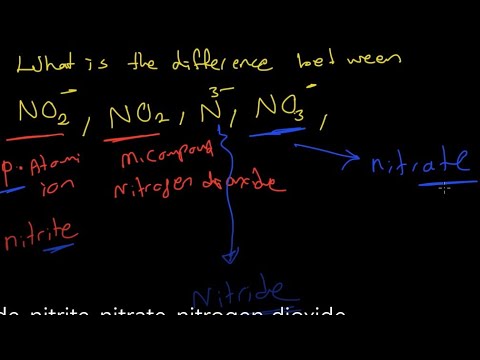 What is the difference between
NO₂⁻, NO₂, N³⁻, NO₃⁻,
P.Atomi M.Compound
ion Nitrogen dioxide
nitrate
nitrite
Nitride
nitrite nitrate nitrogen dioxide